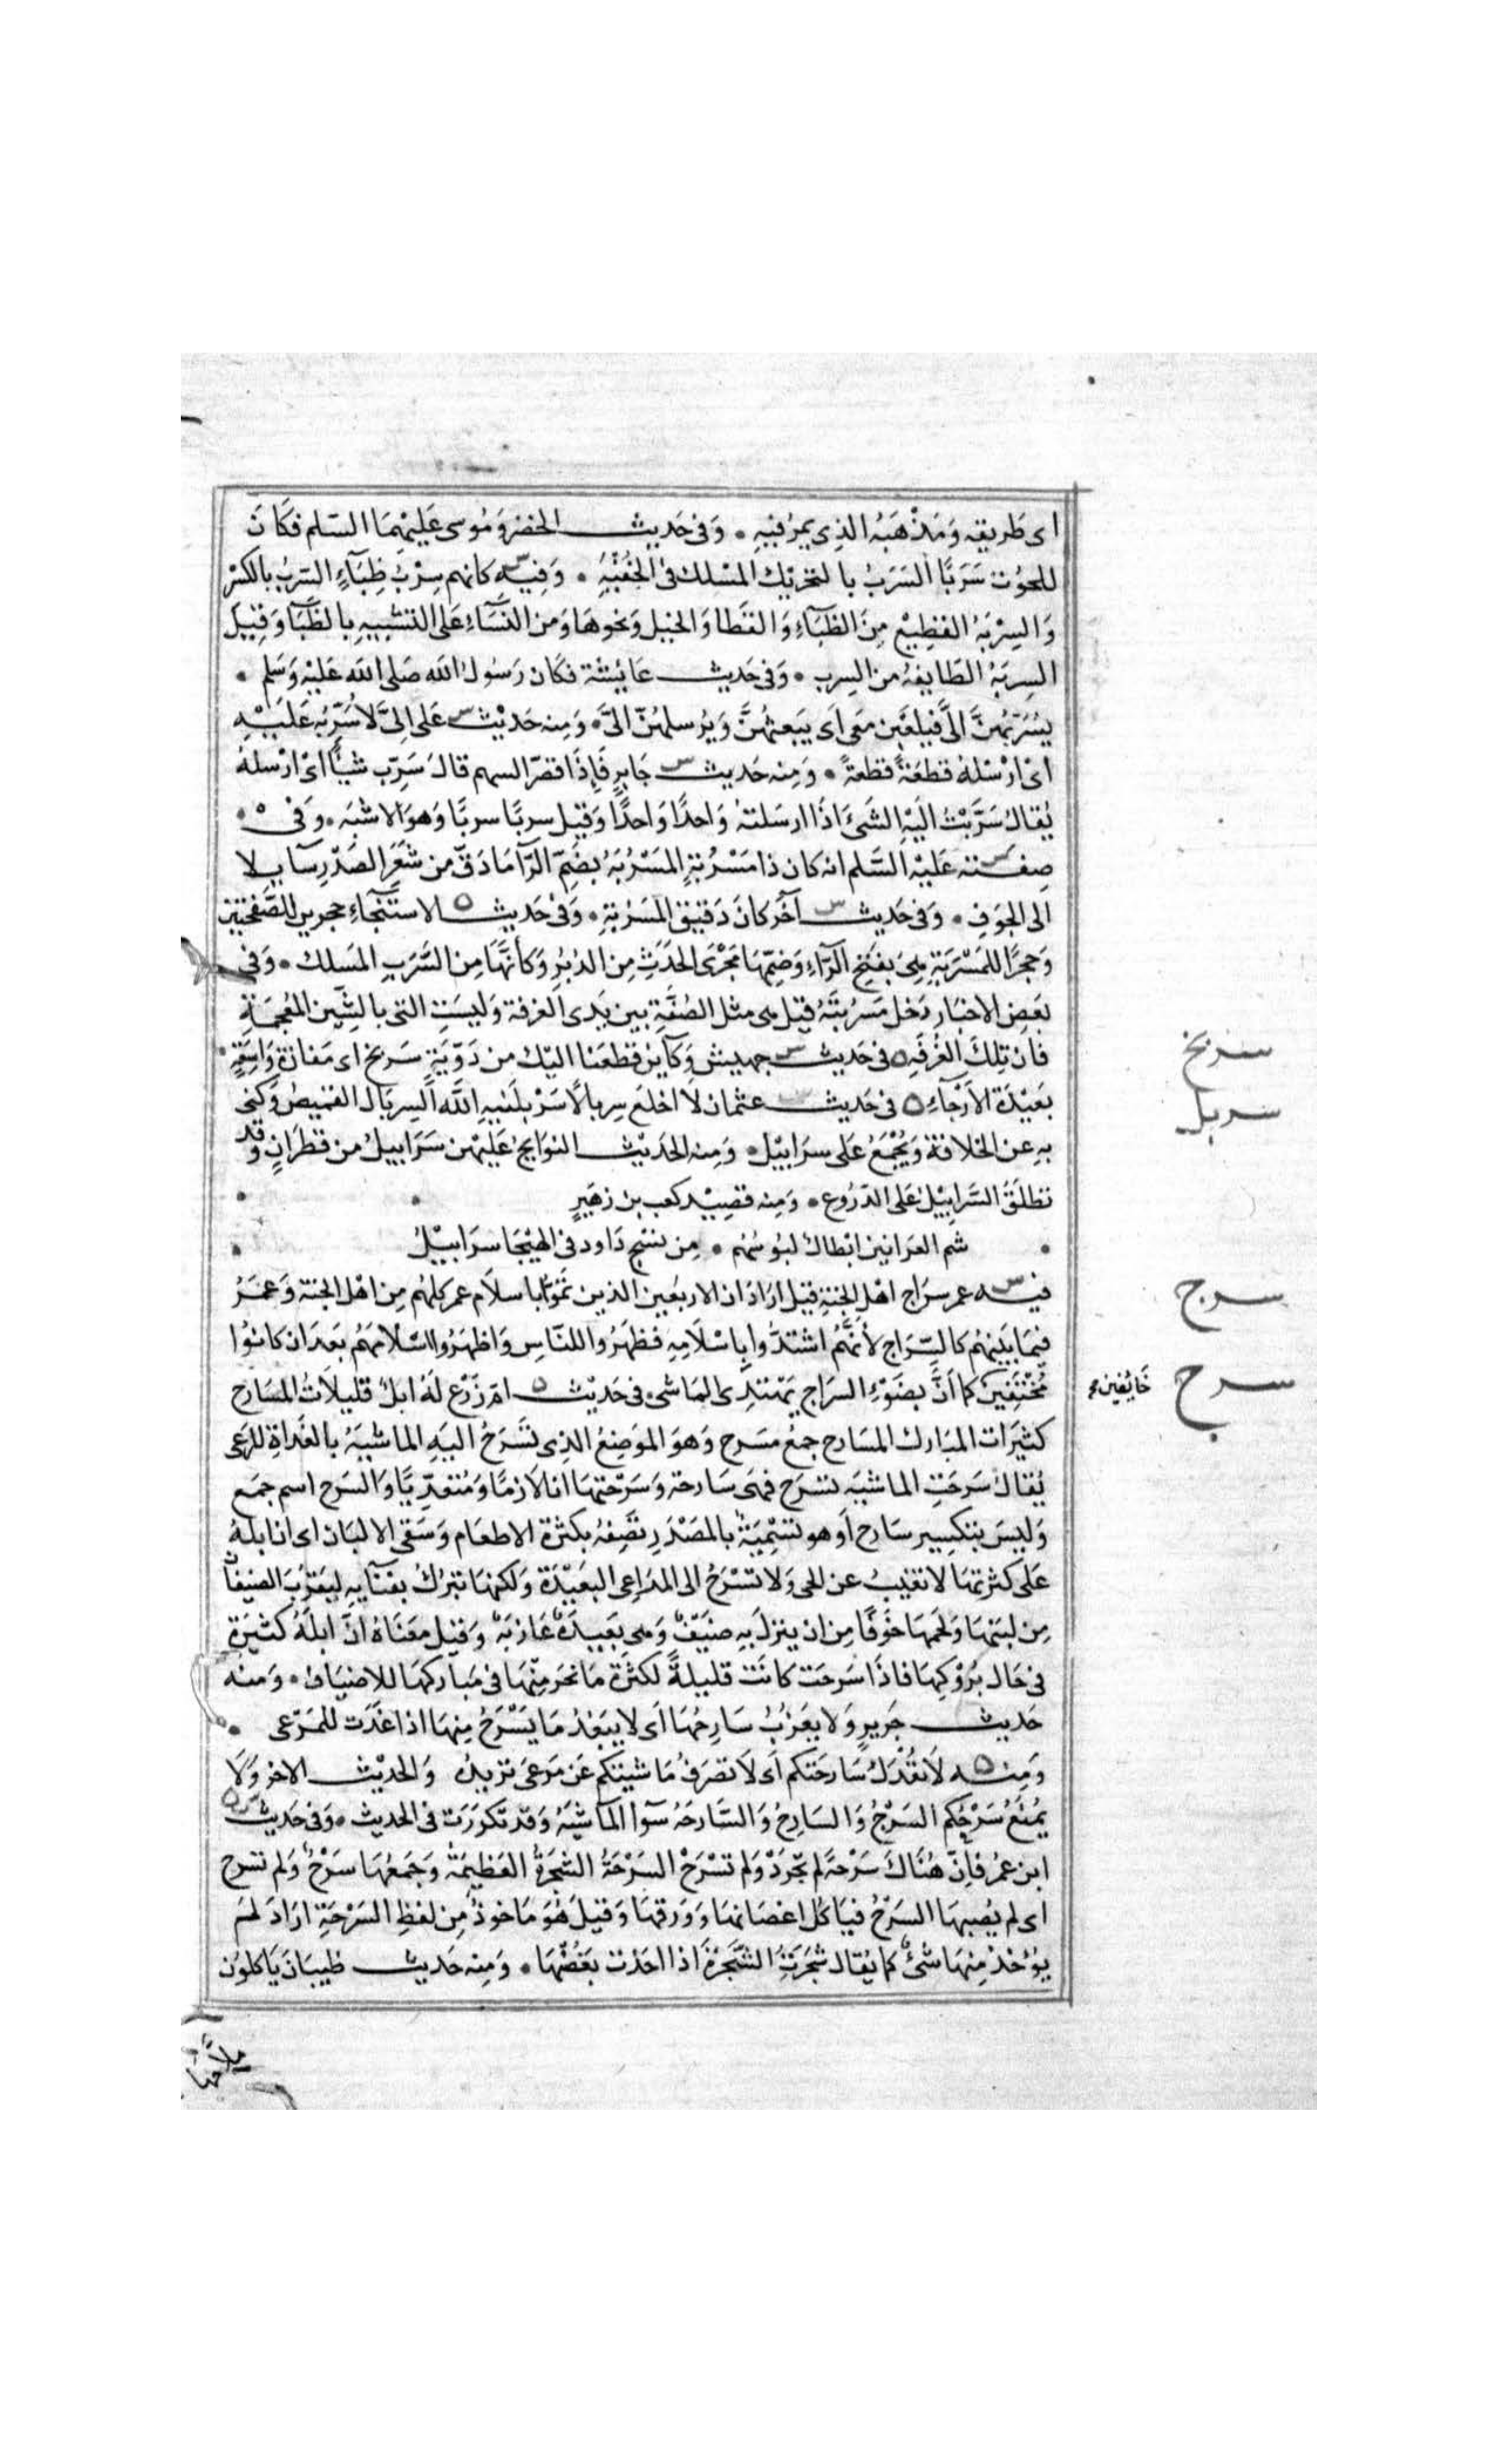 اى طَريقه وَمَذْهَبُه الذِى يمرّ فيهِ • وَفى حَديث الخضر وَمُوسى عَليْهِمَا السّلم فكَانَ
للحوُت سَرَبًا السَرَبُ بالتحريْك المَسْلك فى الخُفْيَةِ • وَفِيه كانهم سِرْبُ ظِبَآءٍ السّربُ بالكسْر
وَالسِرْبَةُ القطِيْع مِنَ الظبَآءِ وَالقَطا وَالخيل وَنحوهَا وَمن النسَآءِ عَلى التشبيهِ بالظّبَآ وَقِيلَ
السِربَةُ الطَايفةُ من السِرب • وَفى حَديث عَايُشة فكَان رَسُولُ الله صَلى الله عَليْه وَسَلم •
يُسَرّبُهنَّ الىَّ فيلعَبْن معى اَى يَبعثهُنَّ وَيُرسلهُنّ الىَّ • وَمِنه حَديْث عَلى اِنىَّ لاُسَرّبُه عَليْهِ
اىْ ارْسلهُ قطعَةً قطعةً • وَمِنه حَديث جَابرٍ فَاِذَا قصّرَ السهم قالَ سَرِّب شيأً اىْ ارْسلهُ
يُقالُ سَرَّبْتُ الَيْهِ الشَىءَ اذَا ارسَلتهُ وَاحدًا وَاحدًا وَقيل سربًا سربًا وَهوَ الاشبَه • وَفى
صِفته عَليْه السَّلم انه كان ذا مَسْرُبةٍ المَسْرُبَةُ بضَمّ الرَّآ مَا دَقّ من شعَرِ الصَدْرِ سَآيلا
الى الجوَفِ • وَفى حَديث آخَر كانَ دَقيقَ المَسرُبَةِ • وَفى حَديث الاستنجآءِ حجرين للصَّفحَتيْن
وَحجرًا للمَسْرَبَةِ هِىَ بفتح الرّآءِ وَضمّهَا مَجْرَى الحَدَثِ مِن الدُبُرِ وَكأنّهَا مِن السَّرَبِ المَسلك • وَفى
بَعضِ الاخبَار دَخل مَسرُبَتَهُ قيل هى مثل الصُفّةِ بين يَدى الغرفة وَليسَت التى بالشّين المُعجمَةِ
فان تِلكَ الغُرْفَةِ فى حَديث جهيش وَكآين قطعَنا اليْك من دَوّيّةٍ سَربَخ اى مَفازة وَاسِعَةٍ
بَعيْدَة الاَرْجآءِ فى حَديث عثمان لاَ اخلع سِربالاً سَرْبلَنيهِ الله السِربَال القميصُ وَكنى
بهِ عن الخلافة وَيُجْمَعُ عَلى سرَابيْل • وَمِنه الحَديْث النوَايحُ عَليْهن سَرَابيلُ من قطرَانٍ وقد
تطلَقُ السَّرابيْل عَلى الدّرُوع • وَمِنه قصِيْد كعب بن زهَيرٍ
شم العرانين ابْطالُ لبُوسُهُم • مِن نسْجِ دَاود فى الهيْجَا سرَابيْلُ
فيه عمر سرَاج اهْل الجنةِ قيل ارَادَ ان الاربعين الذين تمَّوا باسلاَم عمر كلهُم مِن اهْل الجنة وَعمَرُ
فيمَا بَينهُم كالسّرَاج لأنَّهُم اشتدُّوا بِاسْلاَمِهِ فظهَرُوا للنّاسِ وَاظهَرُوا اسْلاَمهَمُ بعدَ ان كانوُا
مُختفينَ كما اَنَّ بضَوْءِ السرَاج يَهْتدِى الماشى فى حَديْث امّ زَرْع لَهُ ابلُ قليلاَتُ المسَارح
كثيرَات المبَارك المسَارح جمعُ مسَرح وَهوَ الموَضِعُ الذِى تسَرَحُ اليَهِ الماشيَةُ بالغَدَاةِ للرّعى
يُقالُ سَرحَتِ الماشيَه تسَرح فهىَ سَارحة وَسَرّحتهَا انا لاَزمًا وَمُتعَدِّيًا وَالسَرح اسم جمَع
وَليسَ بتكسير سَارح اَو هو تسْمِيَةُ بالمَصْدَرِ تصَفِهُ بكثرة الاطعَام وَسَقى الالبَان اى ان ابلهُ
عَلى كثرتهَا لاَ تغيبُ عن الحى وَلا تسْرَحُ الى المرَاعِى البعَيْدَة وَلكنهَا تبرُكُ بفنآيهِ ليَقرُبَ الضيفان
مِن لبنهَا وَلحمهَا خوَفًا مِن ان ينزلَ بهِ ضيَفٌ وَهى بعَيدَةٌ عَازبَةٌ وَقيل معَنَاهُ انّ ابلهَُ كثيرَة
فى حَال برُوْكِهَا فاذَا سَرحَت كانَت قليلةً لكثرَة مَا نحَر مِنْهَا فى مَبَاركهَا للاضيَاف • وَمنه
حَديث جَريرٍ وَلا يعَزُبُ سَارِحُهَا اَى لاَ يبَعْدُ مَا يَسْرَحُ مِنهَا اذا غَدَت للمَرعى •
وَمِنه لاَ تُعْدَلُ سَارحَتكم اَى لاَ تصَرَفُ مَاشيَتكم عَن مَرعَى تريدُه وَالحديْث الاخر وَلَا
يُمنَعُ سَرْحُكم السَرْحُ وَالسَارِحُ وَالسَّارحَهُ سَوآ المآشيَهُ وَقد تكرّرَت فى الحديث • وَفى حَديث
ابن عمُر فاِنّ هُنَاكَ سَرْحةً لم تجُرَدْ وَلم تسْرَحْ السَرْحَةُ الشجرَةُ العَظيمَةُ وَجَمعُهَا سَرْحُ وَلم تسَرح
اى لم يُصِبهَا السَرْحُ فيَأكل اغصَانهَا وَوَرقهَا وَقيلَ هُوَ مَاخوذُ مِن لفظِ السَرْحَةِ ارَادَ لمَ
يوُخذْ مِنهَا شئُ كما يُقال شَجَرَتُ الشجَّرَةَ اذا اخذت بَعْضَهَا • وَمِنه حَديث ظبيَان يَاكلُون
سربخ
سربل
سرج
سرح
خَايفين
ملاّحهَا